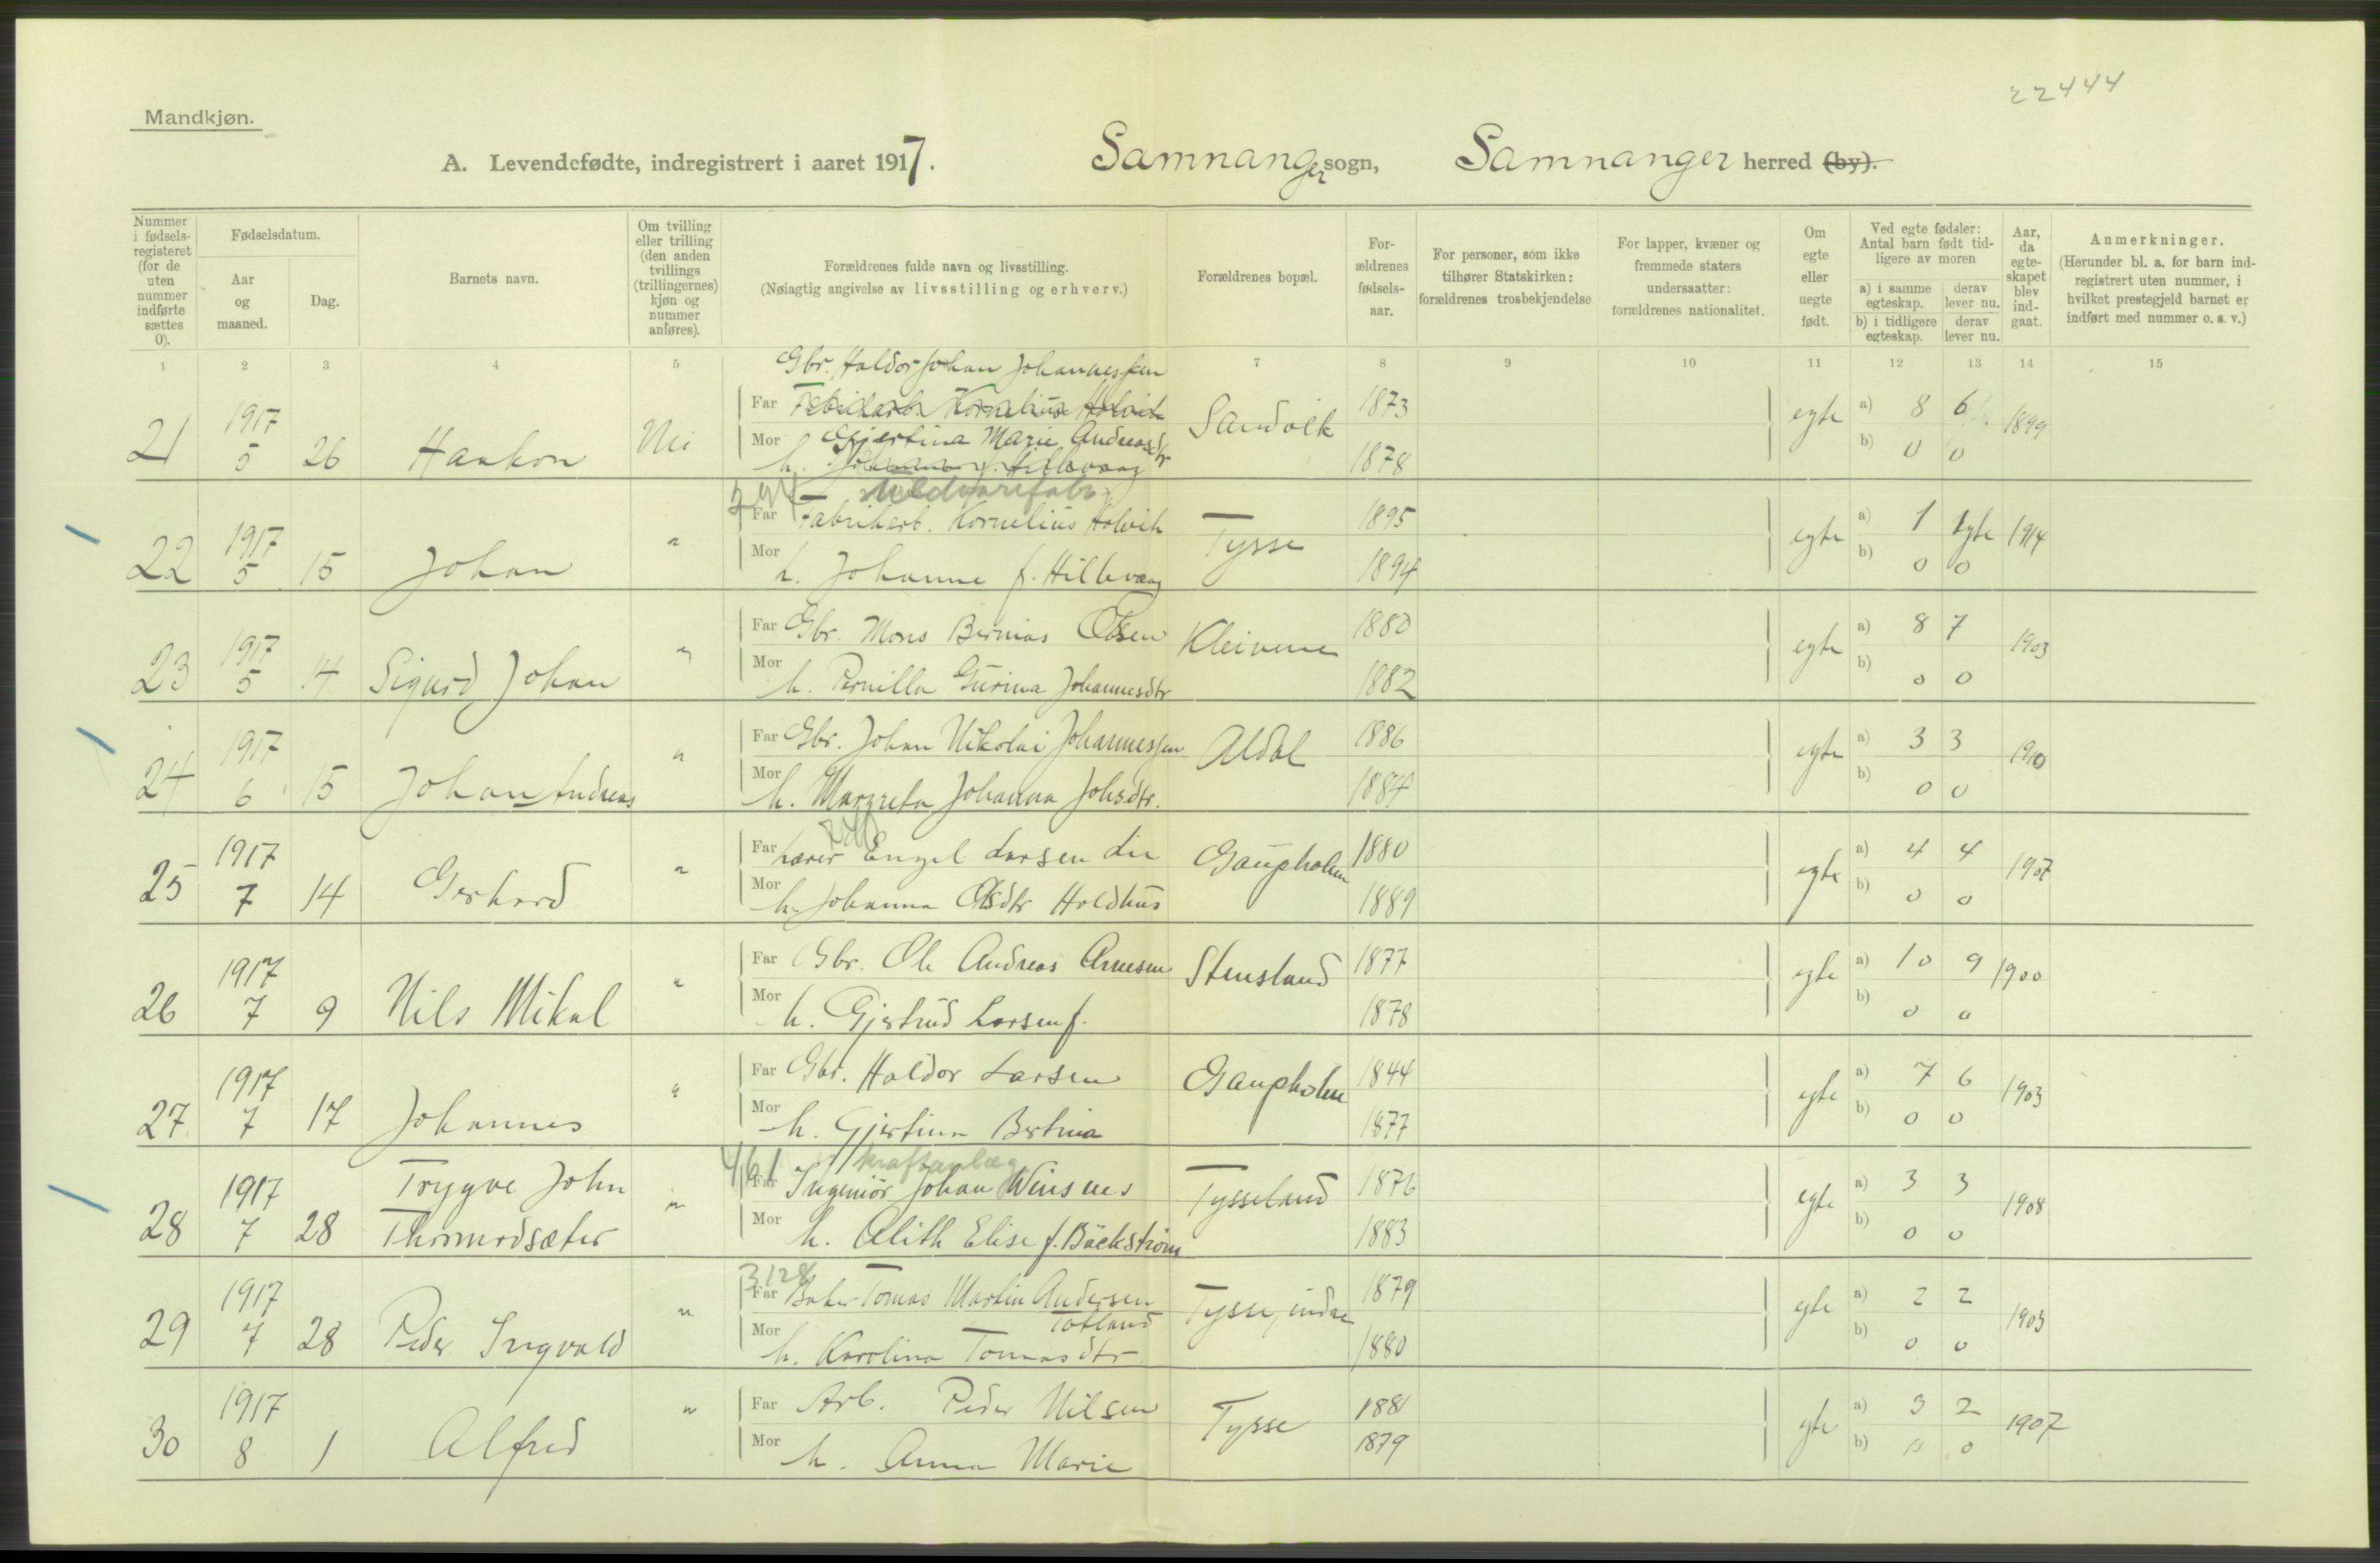 22444
Mandkjøn.
A. Levendefødte, indregistrert i aaret 1917. Samnanger sogn, Samnanger herred (by).
Nummer i fødsels-registeret (for de uten nummer indførte sættes 0).
Fødselsdatum.
Aar og maaned.
Dag.
Barnets navn.
Om tvilling eller trilling (den anden tvillings (trillingernes) kjøn og nummer anføres).
Forældrenes fulde navn og livsstilling.
(Nøiagtig angivelse av livsstilling og erhverv.)
Forældrenes bopæl.
For-ældrenes fødsels-aar.
For personer, som ikke tilhører Statskirken: forældrenes trosbekjendelse
For lapper, kvæner og fremmede staters undersaatter: forældrenes nationalitet.
Om egte eller uegte født.
Ved egte fødsler: Antal barn født tid-ligere av moren
a) i samme egteskap. derav lever nu.
b) i tidligere egteskap. derav lever nu.
Aar, da egte-skapet blev ind-gaat.
Anmerkninger.
(Herunder bl. a. for barn ind-registrert uten nummer, i hvilket prestegjeld barnet er indført med nummer o. s. v.)
1 2 3 4 5 7 8 9 10 11 12 13 14 15
Gbr. Haldor Johan Johannessen
21 1917 5 26 Haakon Nei Far Fabrikarb. Kornelius Holvik Sandvik 1873 egte a) 8 6 1899
Mor Gjertina Marie Andreasdtr
h. Johanne f. Hillevang 1878 b) 0 0
Uldvarefabr.
22 1917 5 15 Johan " Far Fabrikarb. Kornelius Holvik Tysse 1895 egte a) 1 1 1914
Mor h. Johanne f. Hillevang 1894 b) 0 0
23 1917 5 14 Sigurd Johan " Far Gbr. Mons Bernias Olsen Kleivene 1880 egte a) 8 7 1903
Mor h. Pernilla Gurina Johannesdtr 1882 b) 0 0
24 1917 6 15 Johan Andreas " Far Gbr. Johan Nikolai Johannessen Aldal 1886 egte a) 3 3 1910
Mor h. Margreta Johanna Johs.dtr. 1884 b) 0 0
25 1917 7 14 Gerhard " Far Lærer Engel Larsen Lie Gaupholm 1880 egte a) 4 4 1907
Mor h. Johanna Olsdtr Holdhus 1889 b) 0 0
26 1917 7 9 Nils Mikal " Far Gbr. Ole Andreas Arnesen Stensland 1877 egte a) 10 9 1900
Mor h. Gjertrud Larsen f. 1878 b) 0 0
27 1917 7 17 Johannes " Far Gbr. Haldor Larsen Gaupholm 1844 egte a) 7 6 1903
Mor h. Gjertina Bertina 1877 b) 0 0
461 kraftanlæg
28 1917 7 28 Trygve John " Far Ingeniør Johan Winsnes Tysseland 1876 egte a) 3 3 1908
Thormodsæter Mor h. Alith Elise f. Bäckstrøm 1883 b) 0 0
3128
29 1917 7 28 Peder Ingvald " Far Baker Tomas Martin Andersen Tysse, indre 1879 egte a) 2 2 1903
Totland
Mor h. Karolina Tomasdtr 1880 b) 0 0
30 1917 8 1 Alfred " Far Arb. Peder Nilsen Tysse 1881 egte a) 3 2 1907
Mor h. Anna Marie 1879 b) 0 0